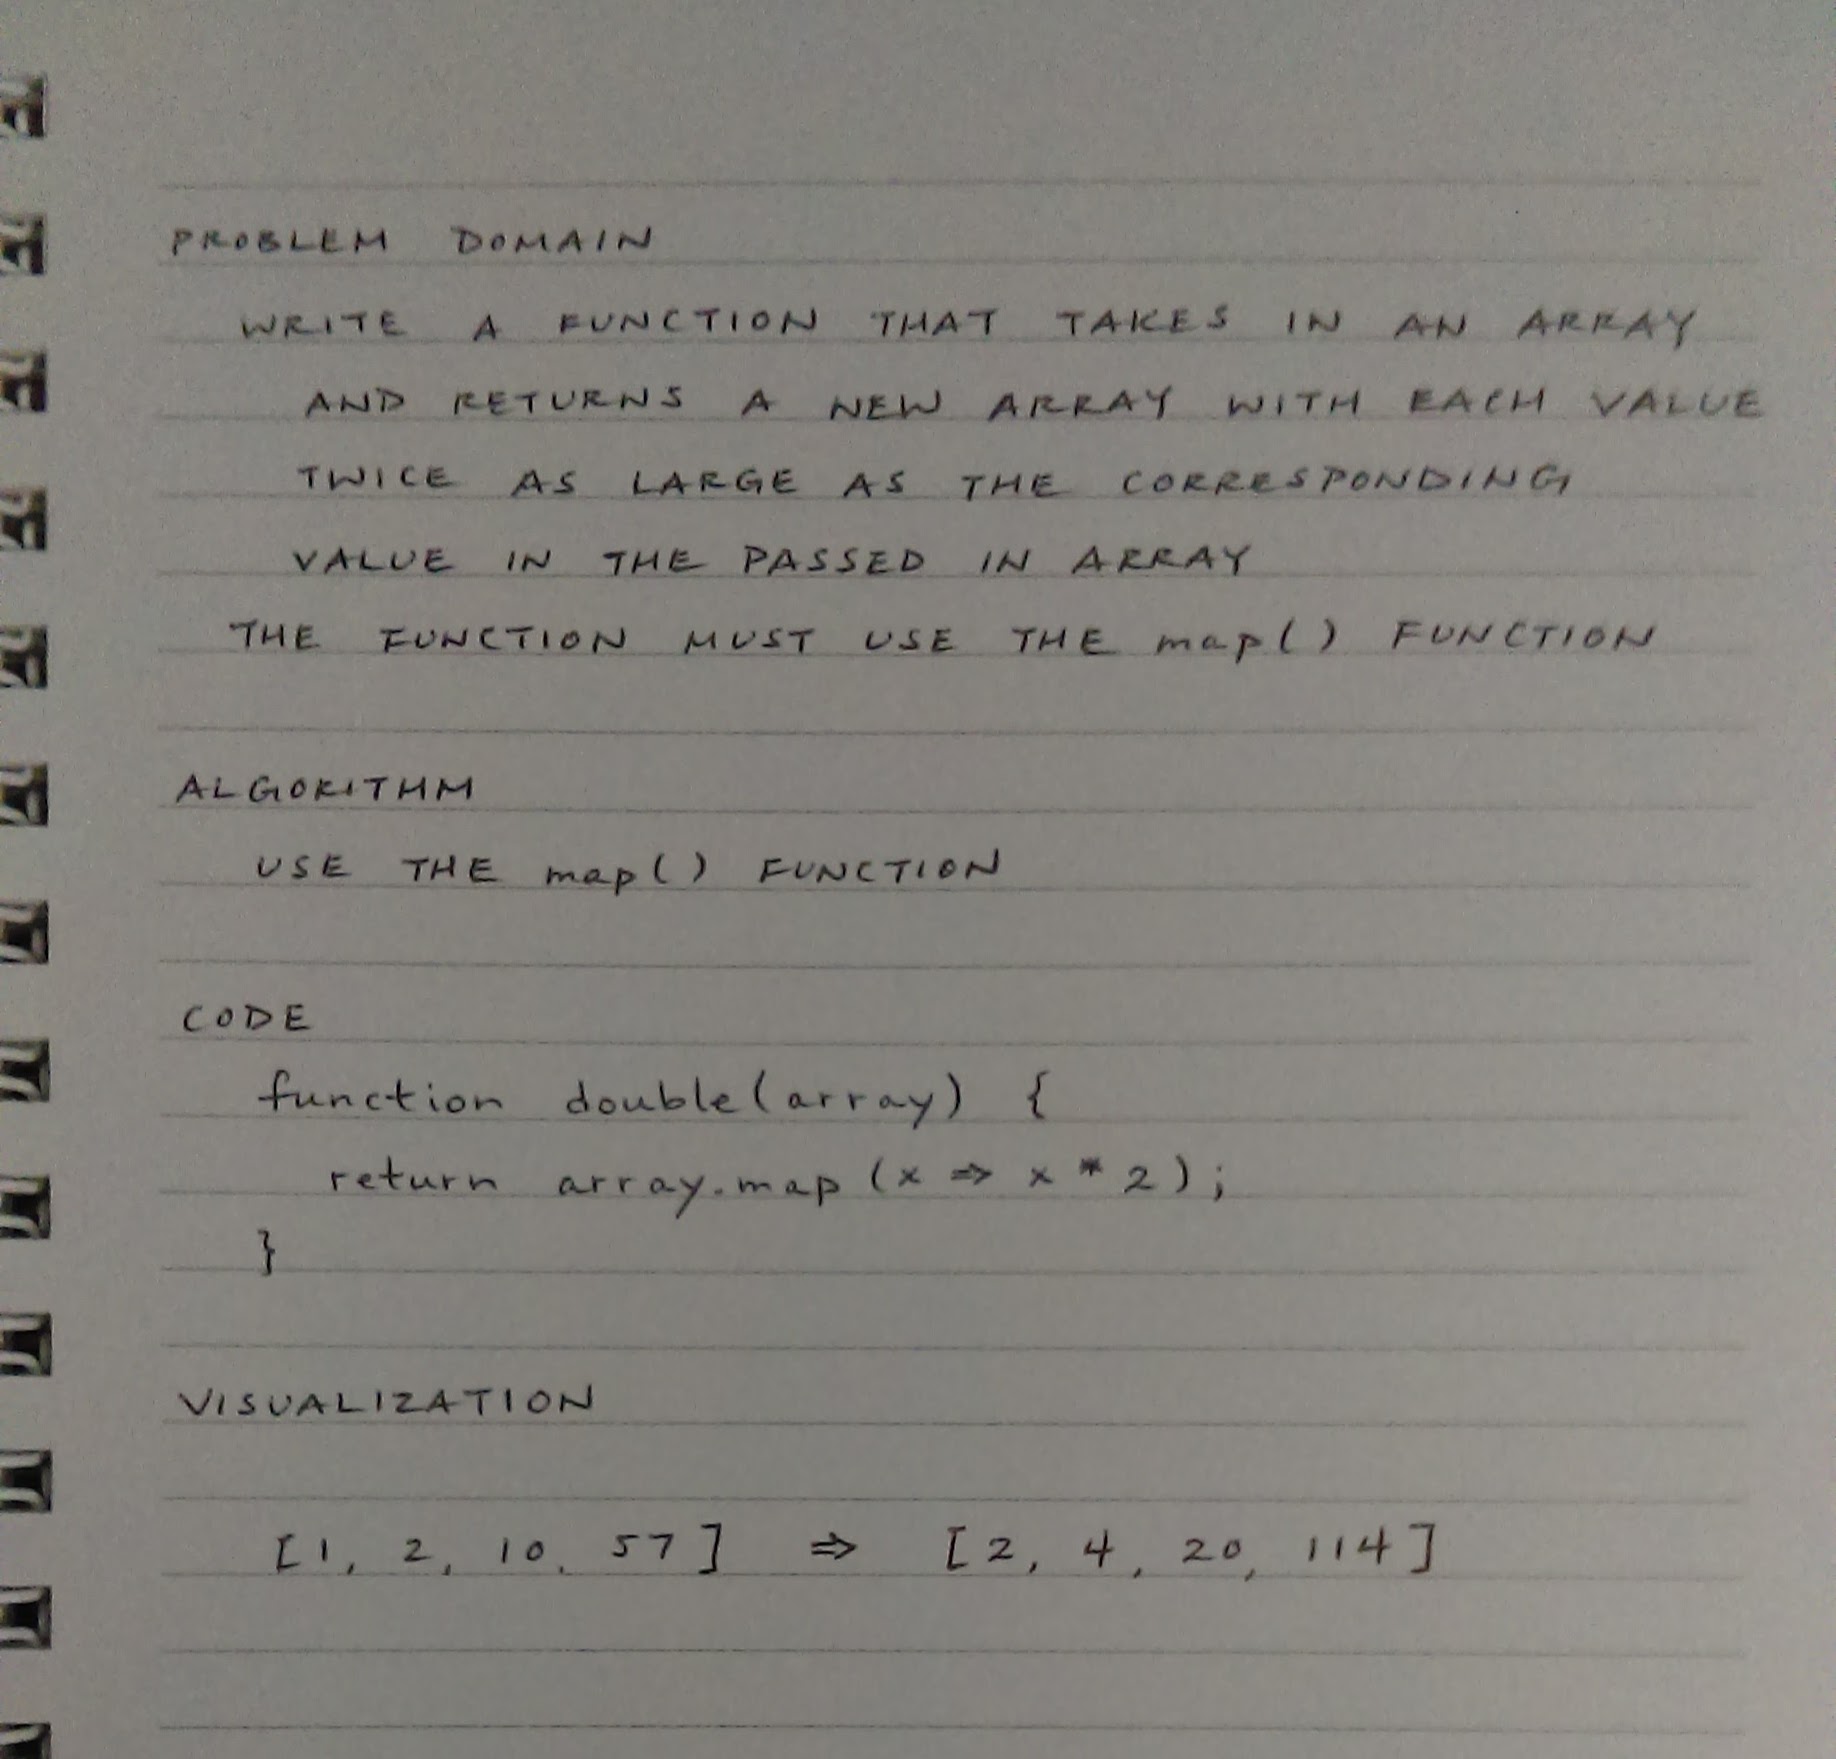 PROBLEM DOMAIN
WRITE A FUNCTION THAT TAKES IN AN ARRAY
AND RETURNS A NEW ARRAY WITH EACH VALUE
TWICE AS LARGE AS THE CORRESPONDING
VALUE IN THE PASSED IN ARRAY
THE FUNCTION MUST USE THE map() FUNCTION
ALGORITHM
USE THE map() FUNCTION
CODE
function double(array) {
return array.map(x => x * 2);
}
VISUALIZATION
[1, 2, 10, 57] ⇒ [2, 4, 20, 114]